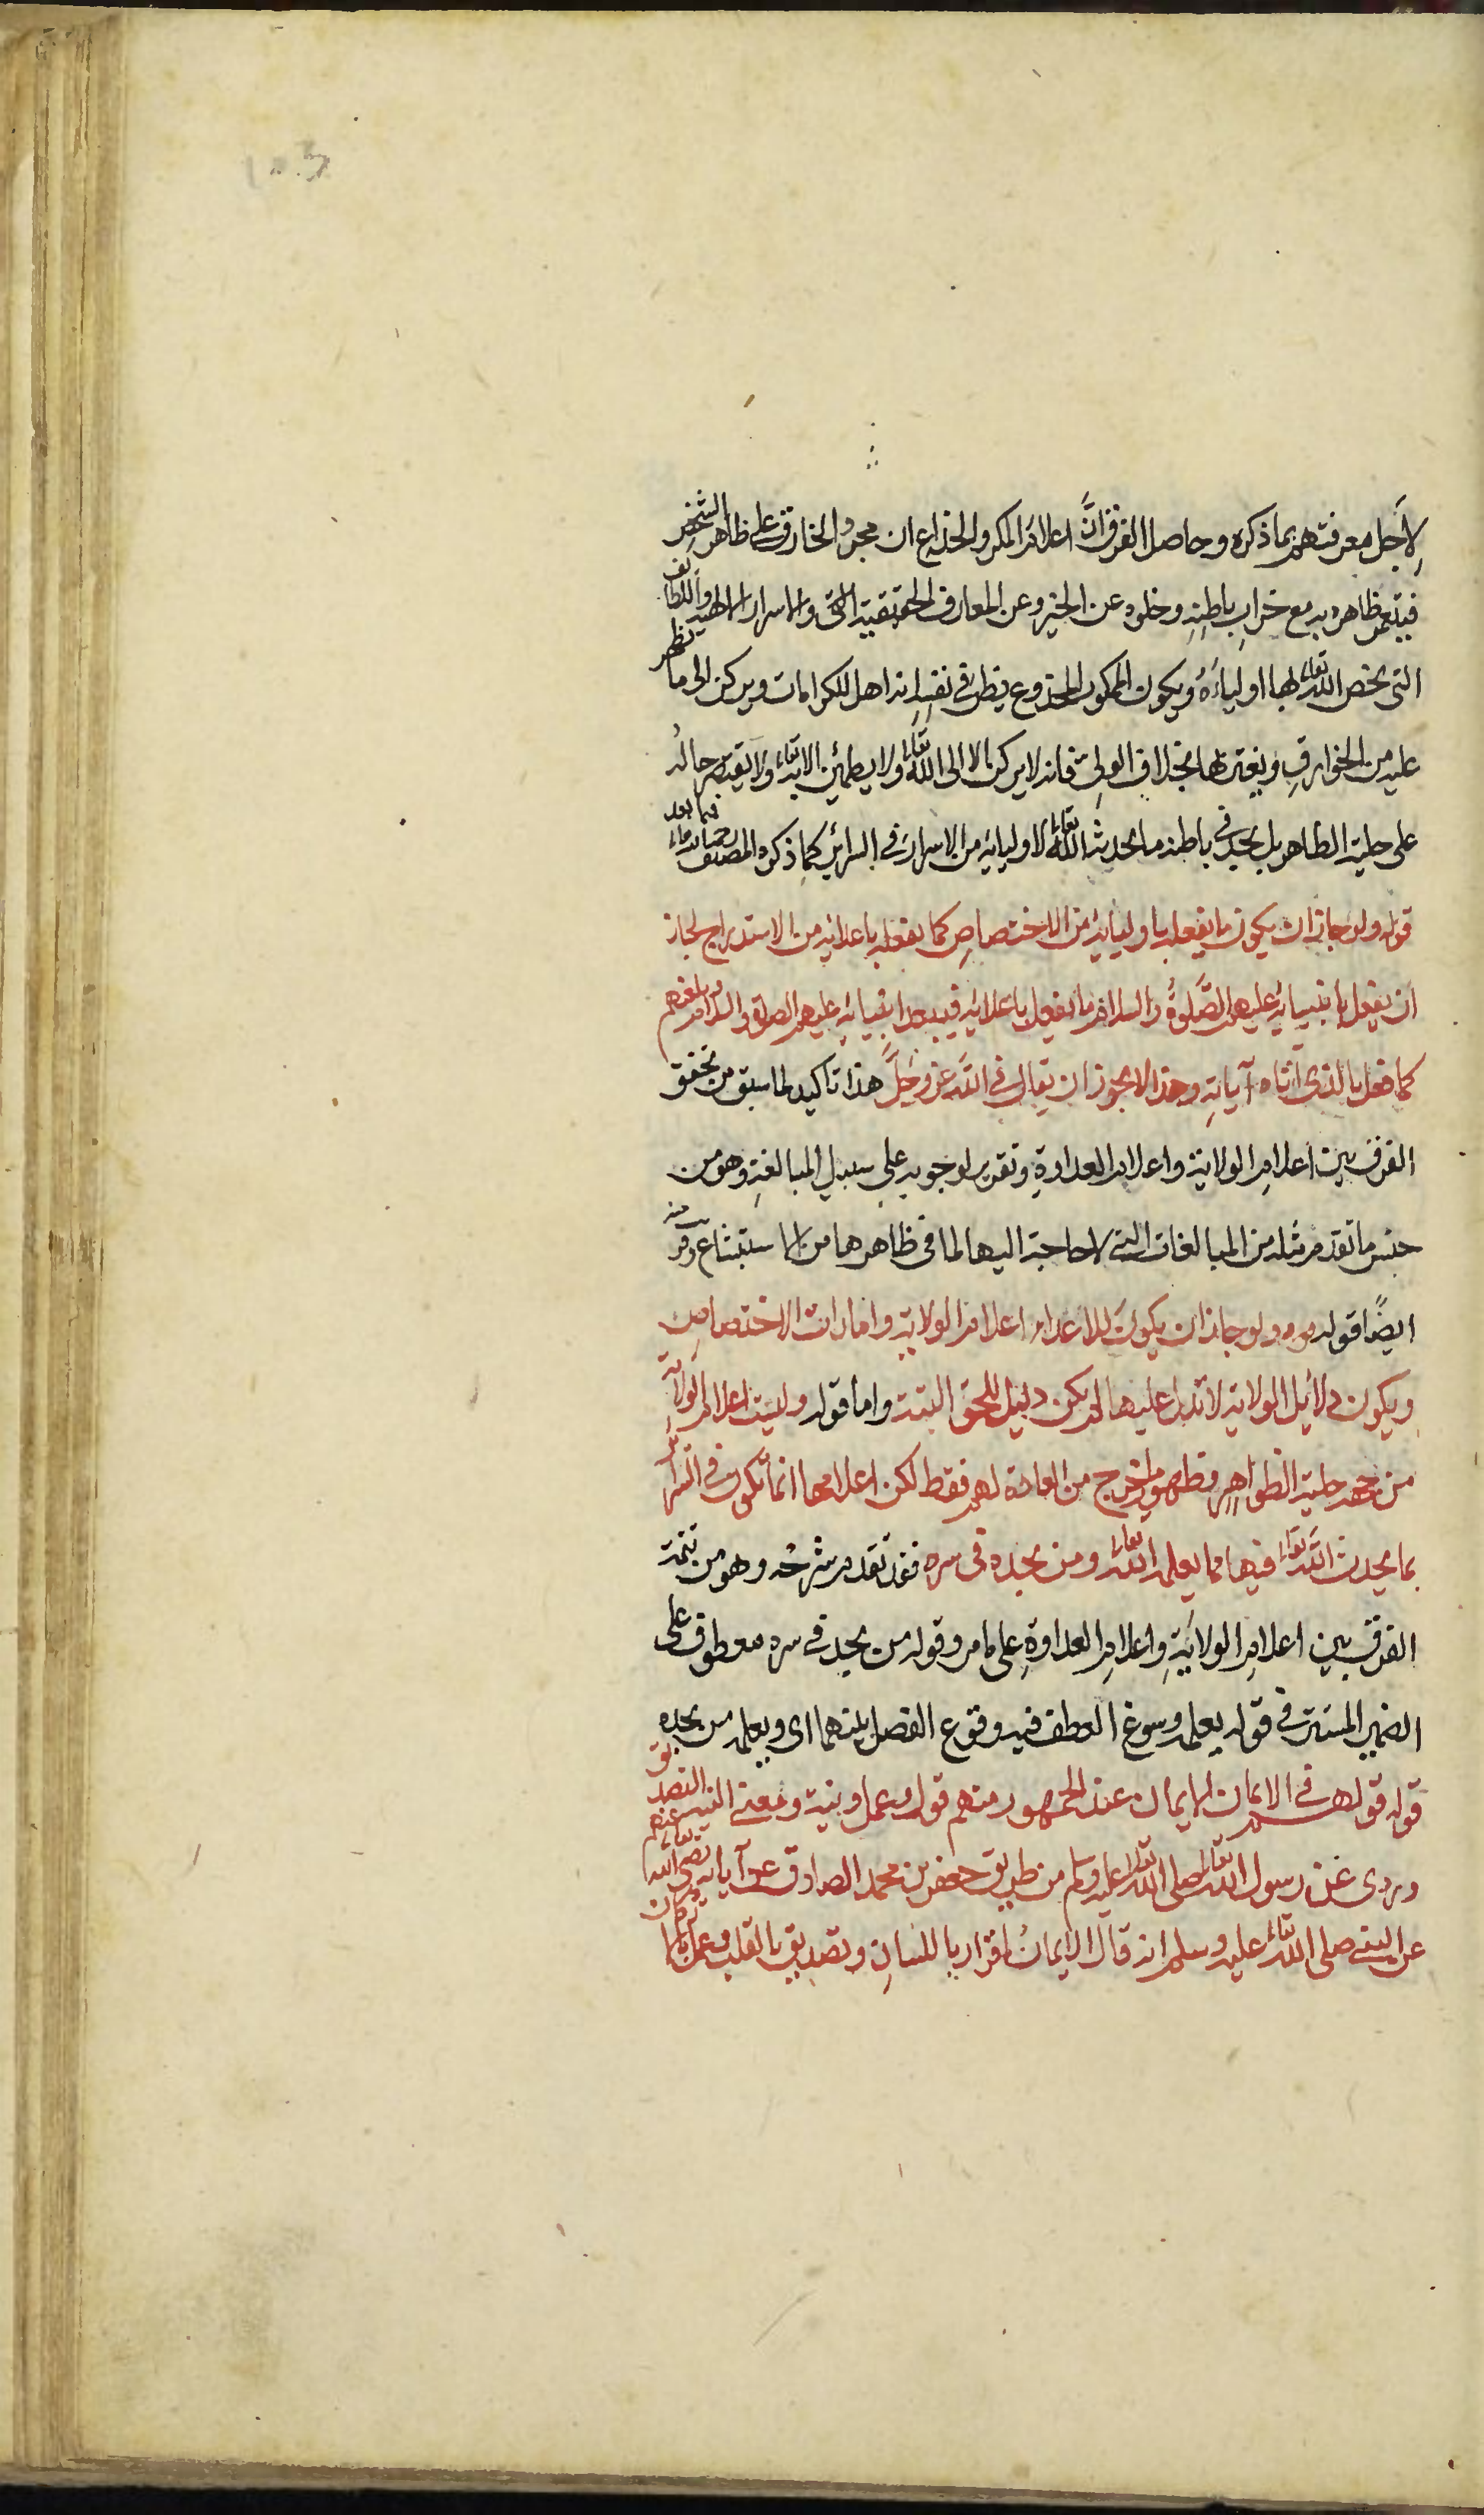 لِاَجل معرفتهم بما ذكره وحاصل الفرق انَّ اعلام المكر والخداع ان مجرد الخارق على ظاهر الشخص
فيتعمر ظاهره به مع خراب باطنه وخلوه عن الخير وعن المعارف الحقيقية التى والاسرار الالهيه واللطائف
التى يخص الله تعالى بها اولياءَهُ ويكون الممكور المخدوع يظن فى نفسه انه اهل للكرامات ويركن الى ما يظهر
عليه من الخوارق ويغتر بها بخلاف الولى فانه لا يركن الا الى الله تعالى ولا يطمئن الا به تعالى ولا يقتصر حاله
على حلية الظاهر بل يجد فى باطنه ما يحدث الله تعالى لاوليايه من الاسرار فى السرائر كما ذكره المصنف رحمه الله تعالى فيما بعد
قوله ولو جاز ان يكون ما يفعله باوليايه من الاختصاص كما يفعله باعدائه من الاستدراج لجاز
ان يفعل بانبيائه عليهم الصَّلوةُ والسلام ما يفعل باعدائه فيبعد انبيائه عليهم الصلوة والسلام ويلعنهم
كما فعل بالذى اتاه آياته وهذا لا يجوز ان يقال فى الله عز وجلَّ هذا تاكيد لما سبق من تحقق
الفرق بين اعلام الولاية واعلام العداوة وتقرير لوجوبه على سبيل المبالغة وهو من
جنس ما تقدم مثله من المبالغات التى لا حاجة اليها لما فى ظاهرها من الاستبشاع ومنه
ايضًا قوله ولو جاز ان يكون للاعداء اعلام الولاية وامارات الاختصاص
ويكون دلائل الولاية لا تدل عليها لم يكن دليل للحق البتة واما قوله وليست اعلام الولاية
من جهة حلية الظواهر وظهور ما خرج من العادة لهم فقط لكن اعلامها انما تكون فى السرائر
بما يحدث الله تعالى فيها مما يعلمه الله تعالى ومن يجده فى سره فقد تقدم شرحه وهو من تتمة
الفرق بين اعلام الولاية واعلام العداوة على ما مر وقوله من يجد فى سره معطوف على
الضمير المستتر فى قوله يعلمه وسوغ العطف فيه وقوع الفصل بينهما اى ويعلمه من يجده
قوله قولهم فى الايمان الايمان عند الجمهور منهم قول وعمل ونية ومعنى النية التصديق
وروى عن رسول الله تعالى صلى الله تعالى عليه وسلم من طريق جعفر بن محمد الصادق عن آبائه رضى الله تعالى عنهم
عن النبى صلى الله تعالى عليه وسلم انه قال الايمانُ اقرار باللسان وتصديق بالقلب وعمل بالاركان